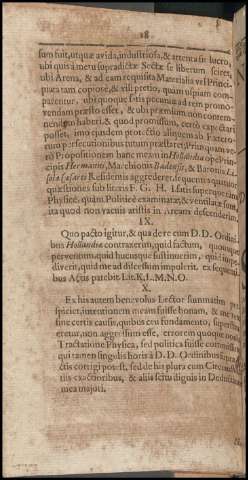 18
sum fuit, utquæ avida, industriosa, & attenta sit lucro,
ubi quis à metu supradictæ Sectæ se liberum sciret,
ubi Arena, & ad eam requisita Materialia vel Princi-
piantam copiosè, & vili pretio, quàm uspiam com-
parentur, ubi quoque satis pecuniæ ad rem promo-
vendam præsto esset, & ubi præmium non contem-
nendum haberi, & quod promissum, certò expectari
posset, imo quidem protectio aliquem ab Extraneo-
rum persecutionibus tutum præstaret; Primum ve-
rò Propositionem hanc meam in Hollandia ope Prin-
cipis Hermannii, Marchionis Badensis, & Baronis Li-
sola Cæsarei Residentis aggrederer, sequentia vanitatum
quæstiones sub literis F. G. H. I. satis superque tam
Physicè, quàm Politicè examinatæ, & ventilatæ sunt,
ita quod non vacuis armis in Arenam descenderim.
IX.
Quo pacto igitur, & qua de re cum D. D. Ordini-
bus Hollandiæ contraxerim, quid factum, quousque
perventum, quid hucusque sustinuerim, quid impe-
diverit, quid me ad discessum impulerit, ex sequenti-
bus Actis patebit. Lit. K. L. M. N. O.
X.
Ex his autem benevolus Lector summatim per-
spiciet, intentionem meam fuisse bonam, & me
sine certis causis, quibus ceu fundamento, super
eretur, non aggressum esse, errorem quoque non
Tractatione Physica, sed politica fuisse commissum
qui tamen singulis horis à D. D. Ordinibus
ctis corrigi potest, sed de his plura cum Circumstan-
tiis exactioribus, & aliis scitu dignis in Deductione
mea majori.